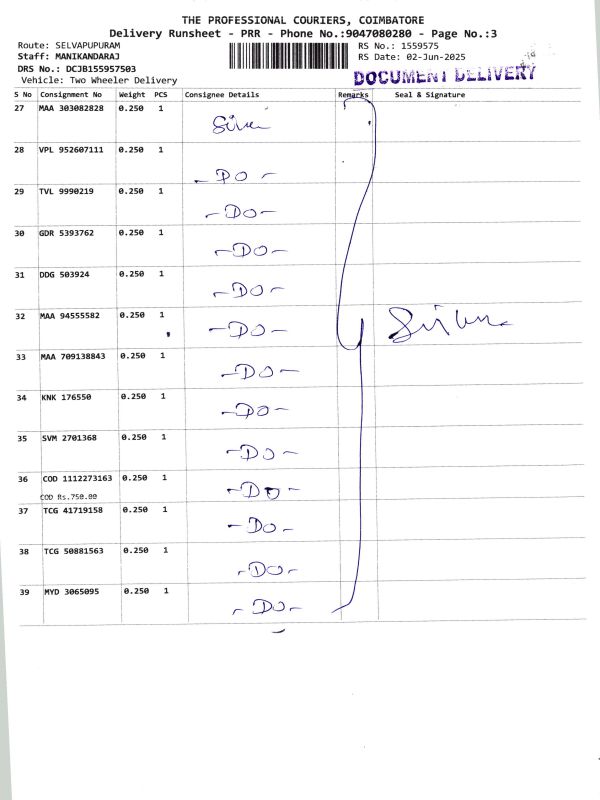 THE PROFESSIONAL COURIERS, COIMBATORE
Delivery Runsheet - PRR - Phone No.:9047080280 - Page No.:3
Route: SELVAPUPURAM
Staff: MANIKANDARAJ
DRS No.: DCJB155957503
Vehicle: Two Wheeler Delivery
RS No.: 1559575
RS Date: 02-Jun-2025
DOCUMENT DELIVERY
S No Consignment No Weight PCS Consignee Details Remarks Seal & Signature
27 MAA 303082828 0.250 1
28 VPL 952607111 0.250 1 - DO -
29 TVL 9990219 0.250 1 - DO -
30 GDR 5393762 0.250 1 - DO -
31 DDG 503924 0.250 1 - DO -
32 MAA 94555582 0.250 1 - DO -
33 MAA 709138843 0.250 1 - DO -
34 KNK 176550 0.250 1 - DO -
35 SVM 2701368 0.250 1 - DO -
36 COD 1112273163 0.250 1 - DO -
COD Rs.750.00
37 TCG 41719158 0.250 1 - DO -
38 TCG 50881563 0.250 1 - DO -
39 MYD 3065095 0.250 1 - DO -